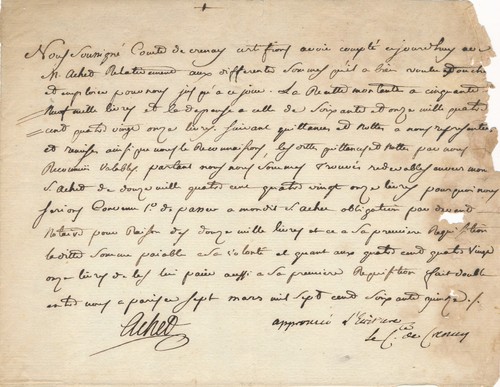 Nous Soussigné Comte de crenay certifions avoir compté ejourdhuy avec
M. Achet Relativement aux differentes Sommes qu'il a bien voulu
et employer pour nous jusqu'a ce jour. La Recette montante a cinquante
Neuf mille livres et la depense a celle de Soixante et onze mille quatre
cent quatre vingt onze livres, suivant quittances et Nottes a nous representées
et remises ainsi que nous le Reconnoissons, les dittes quittances et Nottes par nous
Reconnues Valables, partant nous nous Sommes Trouvés redevables envers mon
S. achet de douze mille quatre cent quatre vingt onze livres pourquoi nous
Serions Convenu 1.° de passer a mondit S. achet obligation par devant
Notaire pour Raison des douze mille livres et ce a Sa premiere Requisition
laditte Somme paiable a Sa Volonté et quant aux quatre cent quatre vingt
onze livres de les lui paier aussi a Sa premiere Requisition fait double
entre nous a paris ce Sept mars mil Sept cent Soixante quinze ./.
approuvé l'Ecriture
Achet
le C.te de Crenay